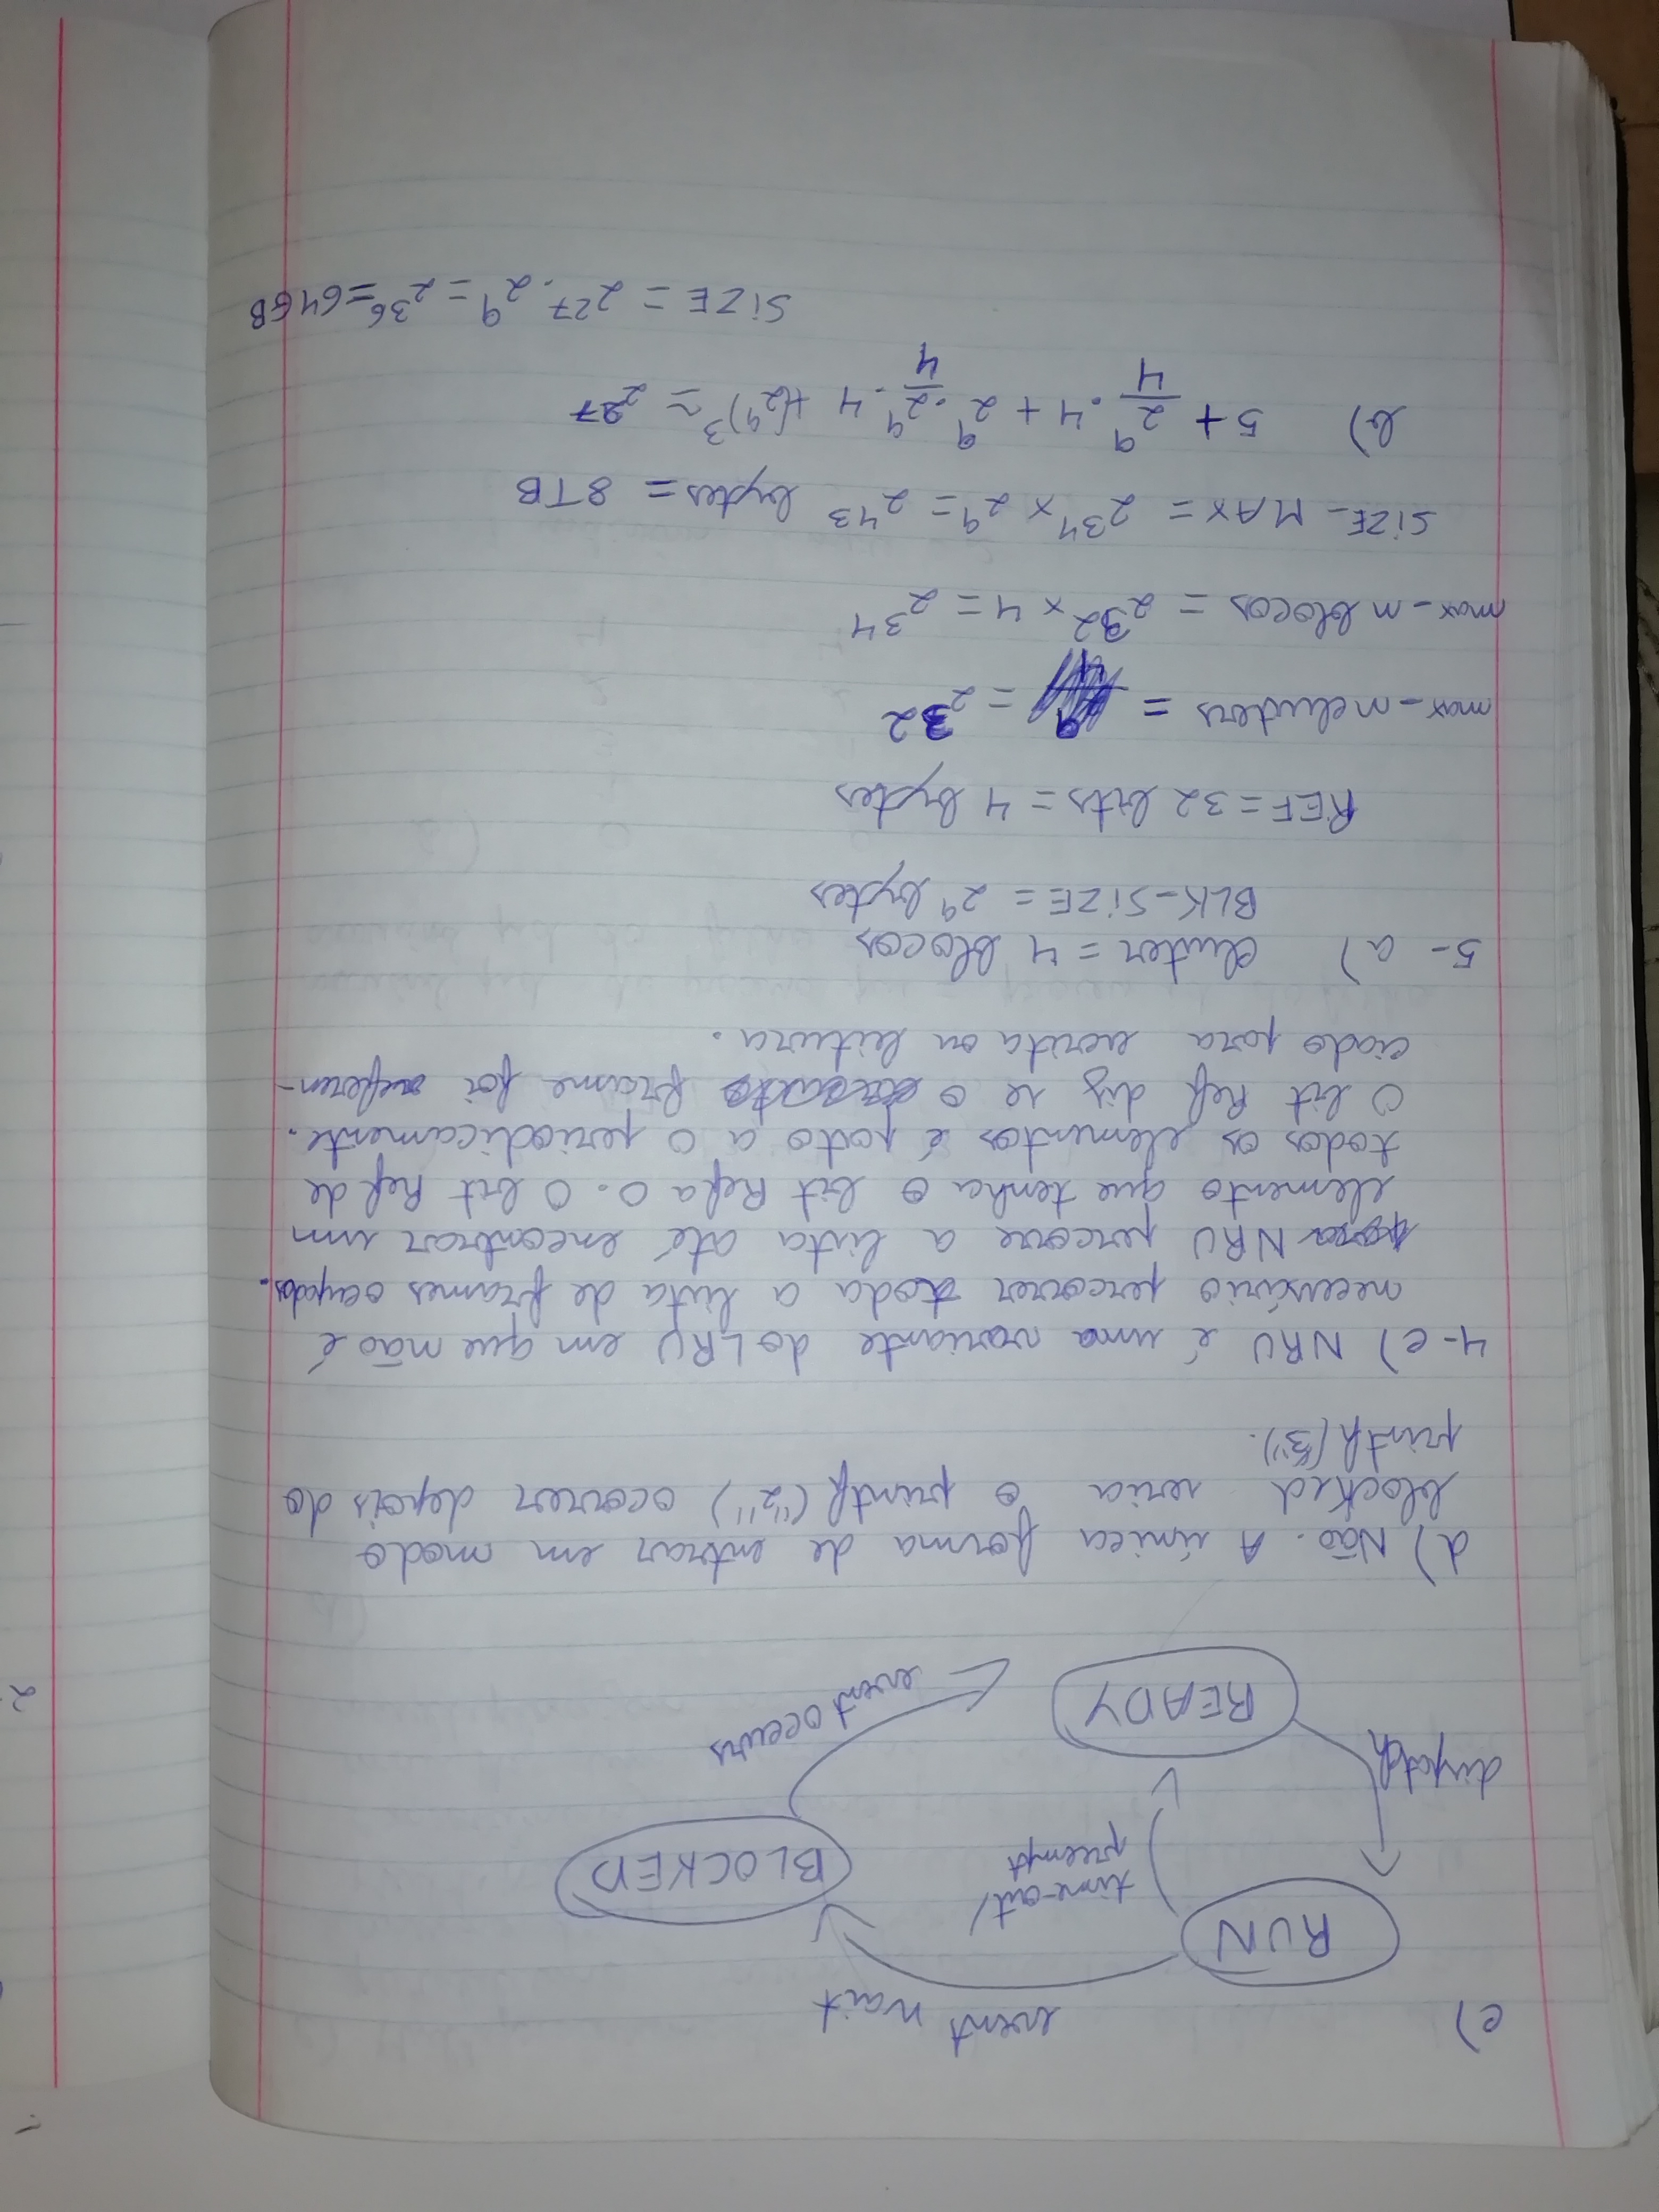 c)
event wait
RUN
time-out/
preempt
BLOCKED
dispatch
READY
event occurs
d) Não. A única forma de entrar em modo
blocked seria o printf("2") ocorrer depois do
printf("3").
4- c) NRU é uma variante do LRU em que não é
necessário percorrer toda a lista de frames ocupados.
NRU percorre a lista até encontrar um
elemento que tenha o bit Ref a 0. O bit Ref de
todos os elementos é posto a 0 periodicamente.
O bit Ref diz se o frame foi referen-
ciado para escrita ou leitura.
5- a) cluster = 4 blocos
BLK_SIZE = 2^9 bytes
REF = 32 bits = 4 bytes
max_nclusters = = 2^32
max_nblocos = 2^32 x 4 = 2^34
SIZE_MAX = 2^34 x 2^9 = 2^43 bytes = 8TB
b) 5 + 2^9/4 . 4 + 2^9 . 2^9/4 . 4 + (2^9)^3 ≃ 2^27
SIZE = 2^27 . 2^9 = 2^36 = 64GB
2